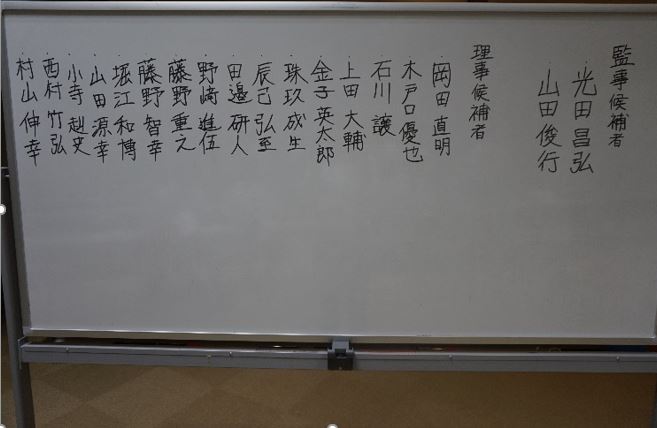 監事候補者
光田 昌弘
山田 俊行
理事候補者
岡田 直明
木戸口 優也
石川 譲
上田 大輔
金子 英太郎
珠玖 成生
辰己 弘至
田邉 研人
野﨑 進伍
藤野 重之
藤野 智幸
堀江 和博
山田 源幸
小寺 起史
西村 竹弘
村山 伸幸